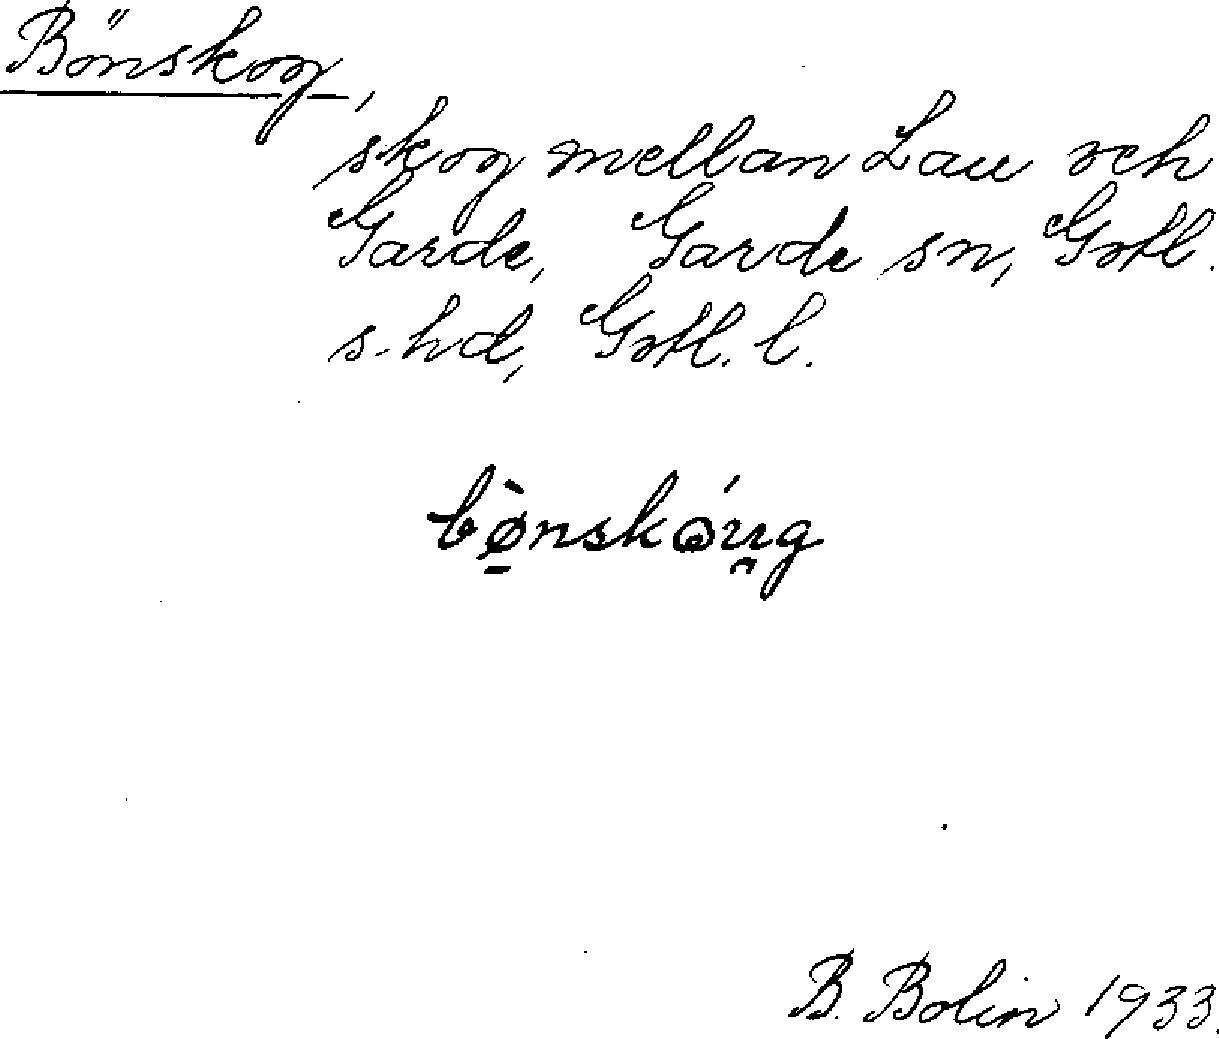 Bönskog,
skog mellan Lau och
Garde, Garde sn, Gotl.
s. hd, Gotl. l.
bø̠̀nskǿu̯g
B. Bolin 1933.